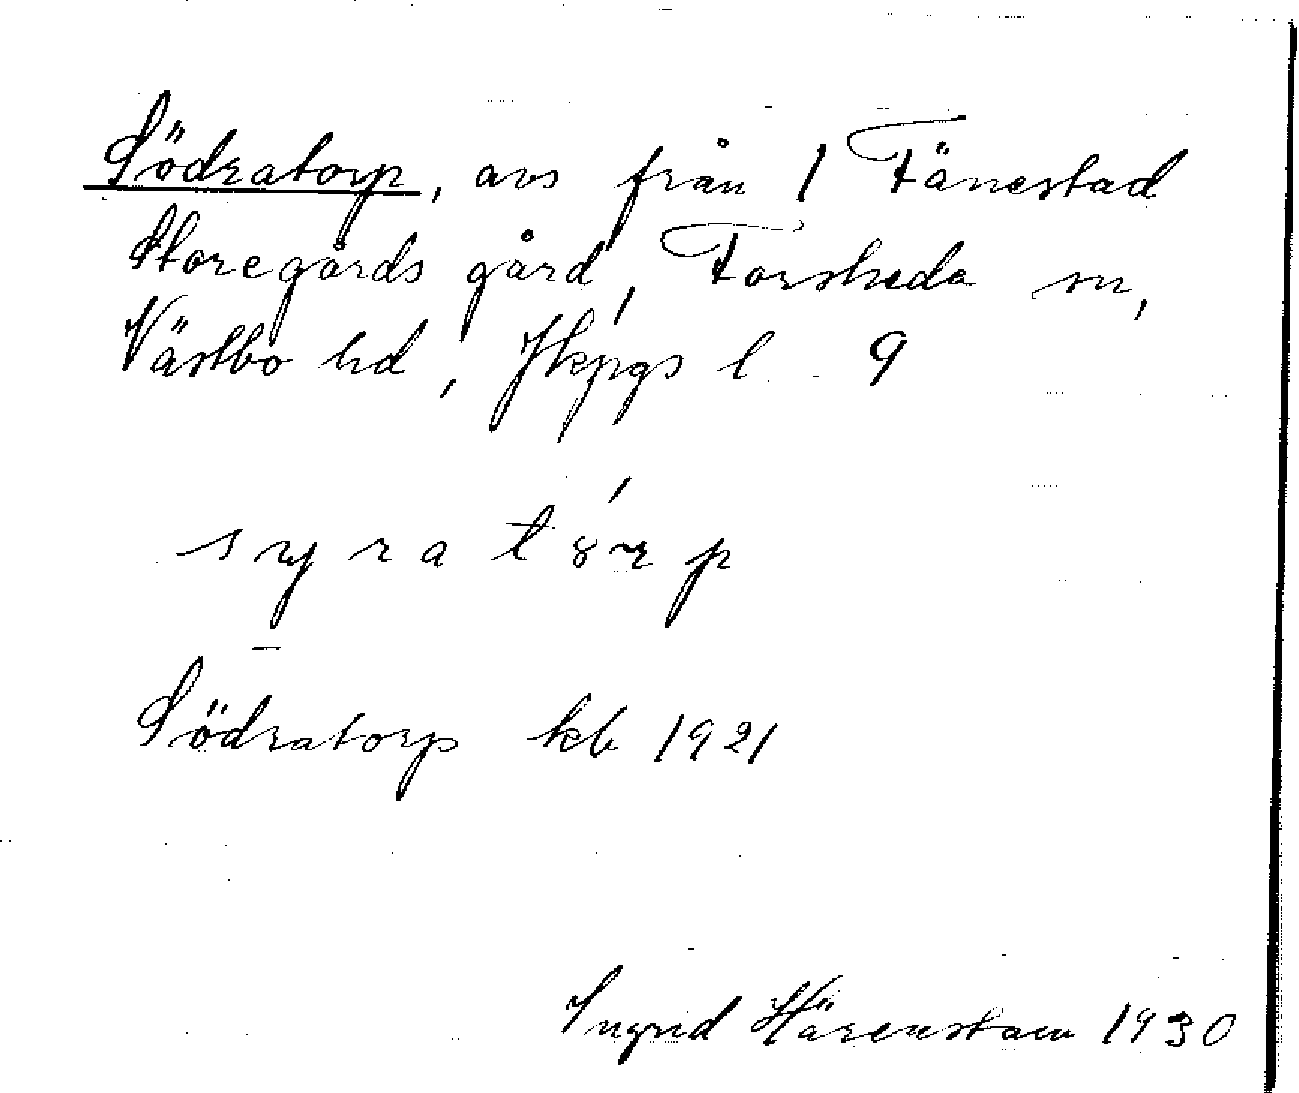 Södratorp, avs från 1 Fänestad
Storegårds gård, Forsheda sn,
Västbo hd, Jkpgs l. 9
syratȣ́rp
Södratorp kb 1921
Ingrid Härenstam 1930